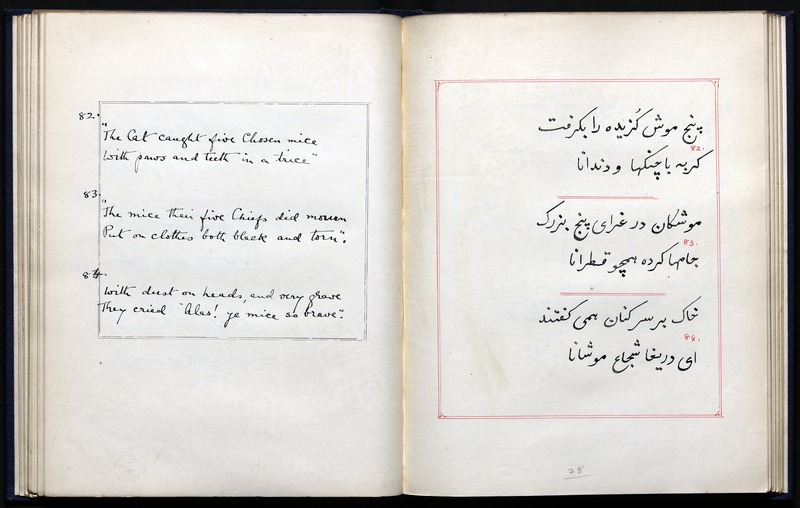 82.
"The Cat caught five Chosen mice
With paws and teeth in a trice"
83.
"The mice their five Chiefs did mourn
Put on clothes both black and torn".
84.
With dust on heads, and very grave
They cried "Alas! ye mice so brave".
پنج موش گزیده را بگرفت
82.
گربه با چنگها و دندانا
موشکان در عزای پنج بزرگ
83.
جامها کرده همچو قطرانا
خاک بر سر کنان همی گفتند
84.
ای دریغا شجاع موشانا
28